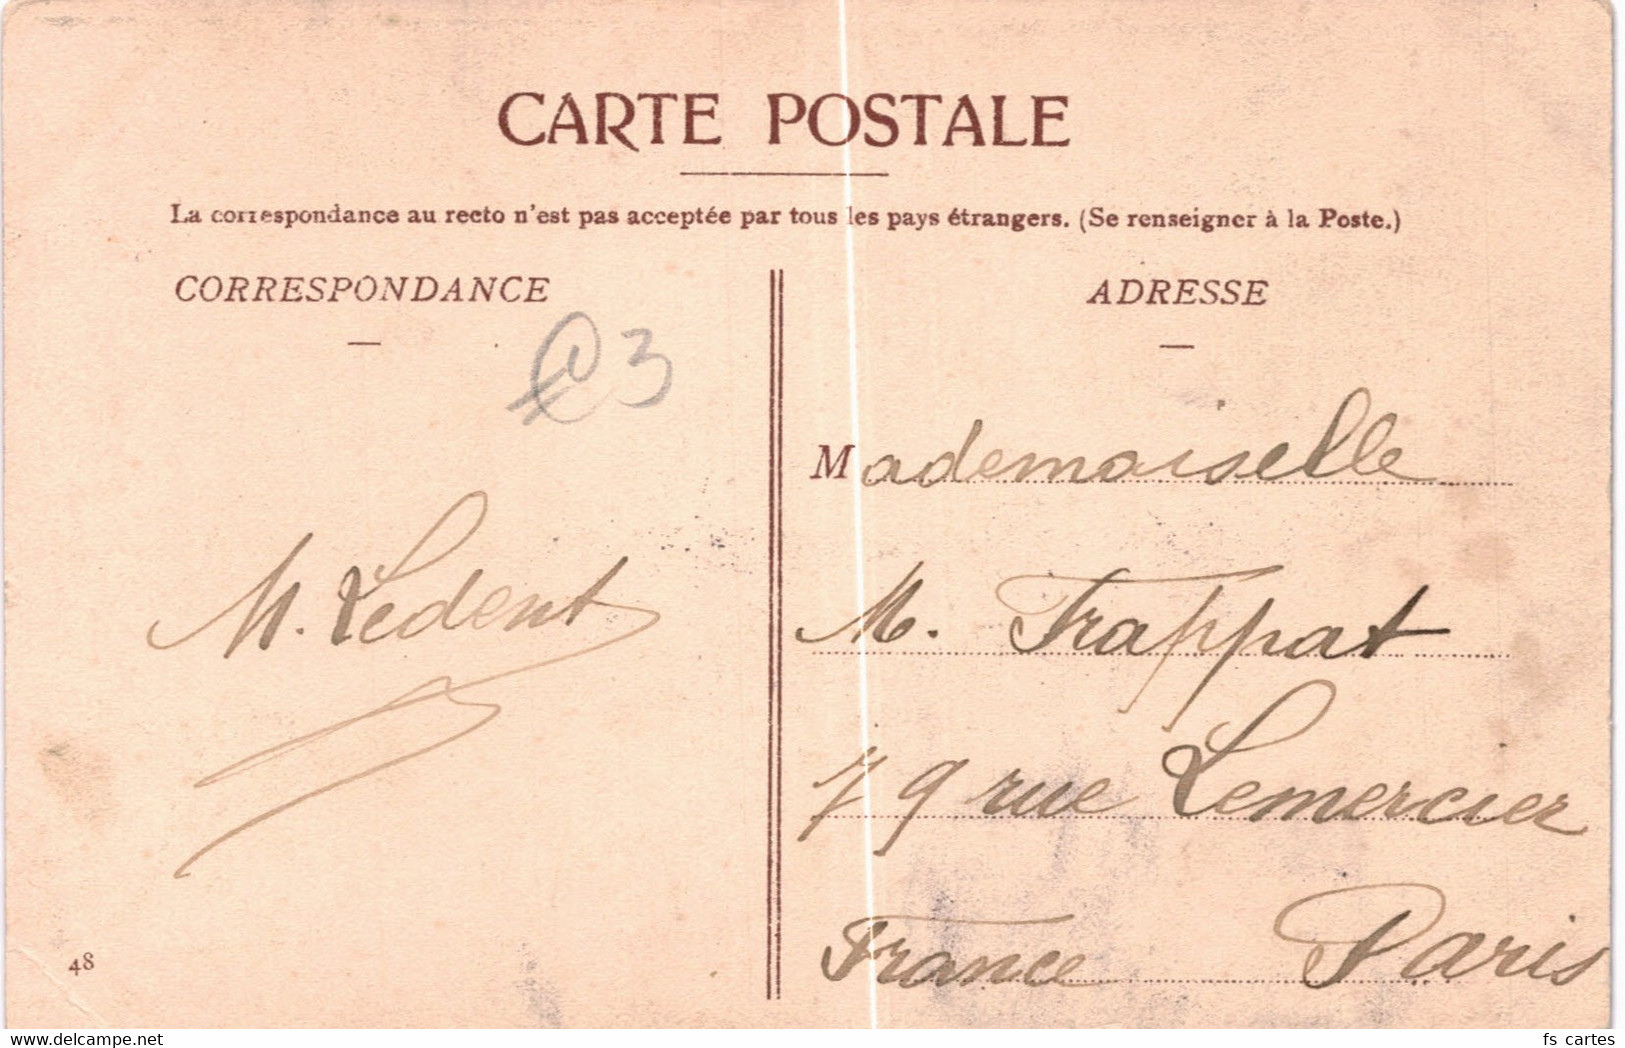 CARTE POSTALE
La correspondance au recto n'est pas acceptée par tous les pays étrangers. (Se renseigner à la Poste.)
CORRESPONDANCE
ADRESSE
€3
M. Ledent
48
Mademoiselle
M. Trappat
79 rue Lemercier
France Paris
fs cartes